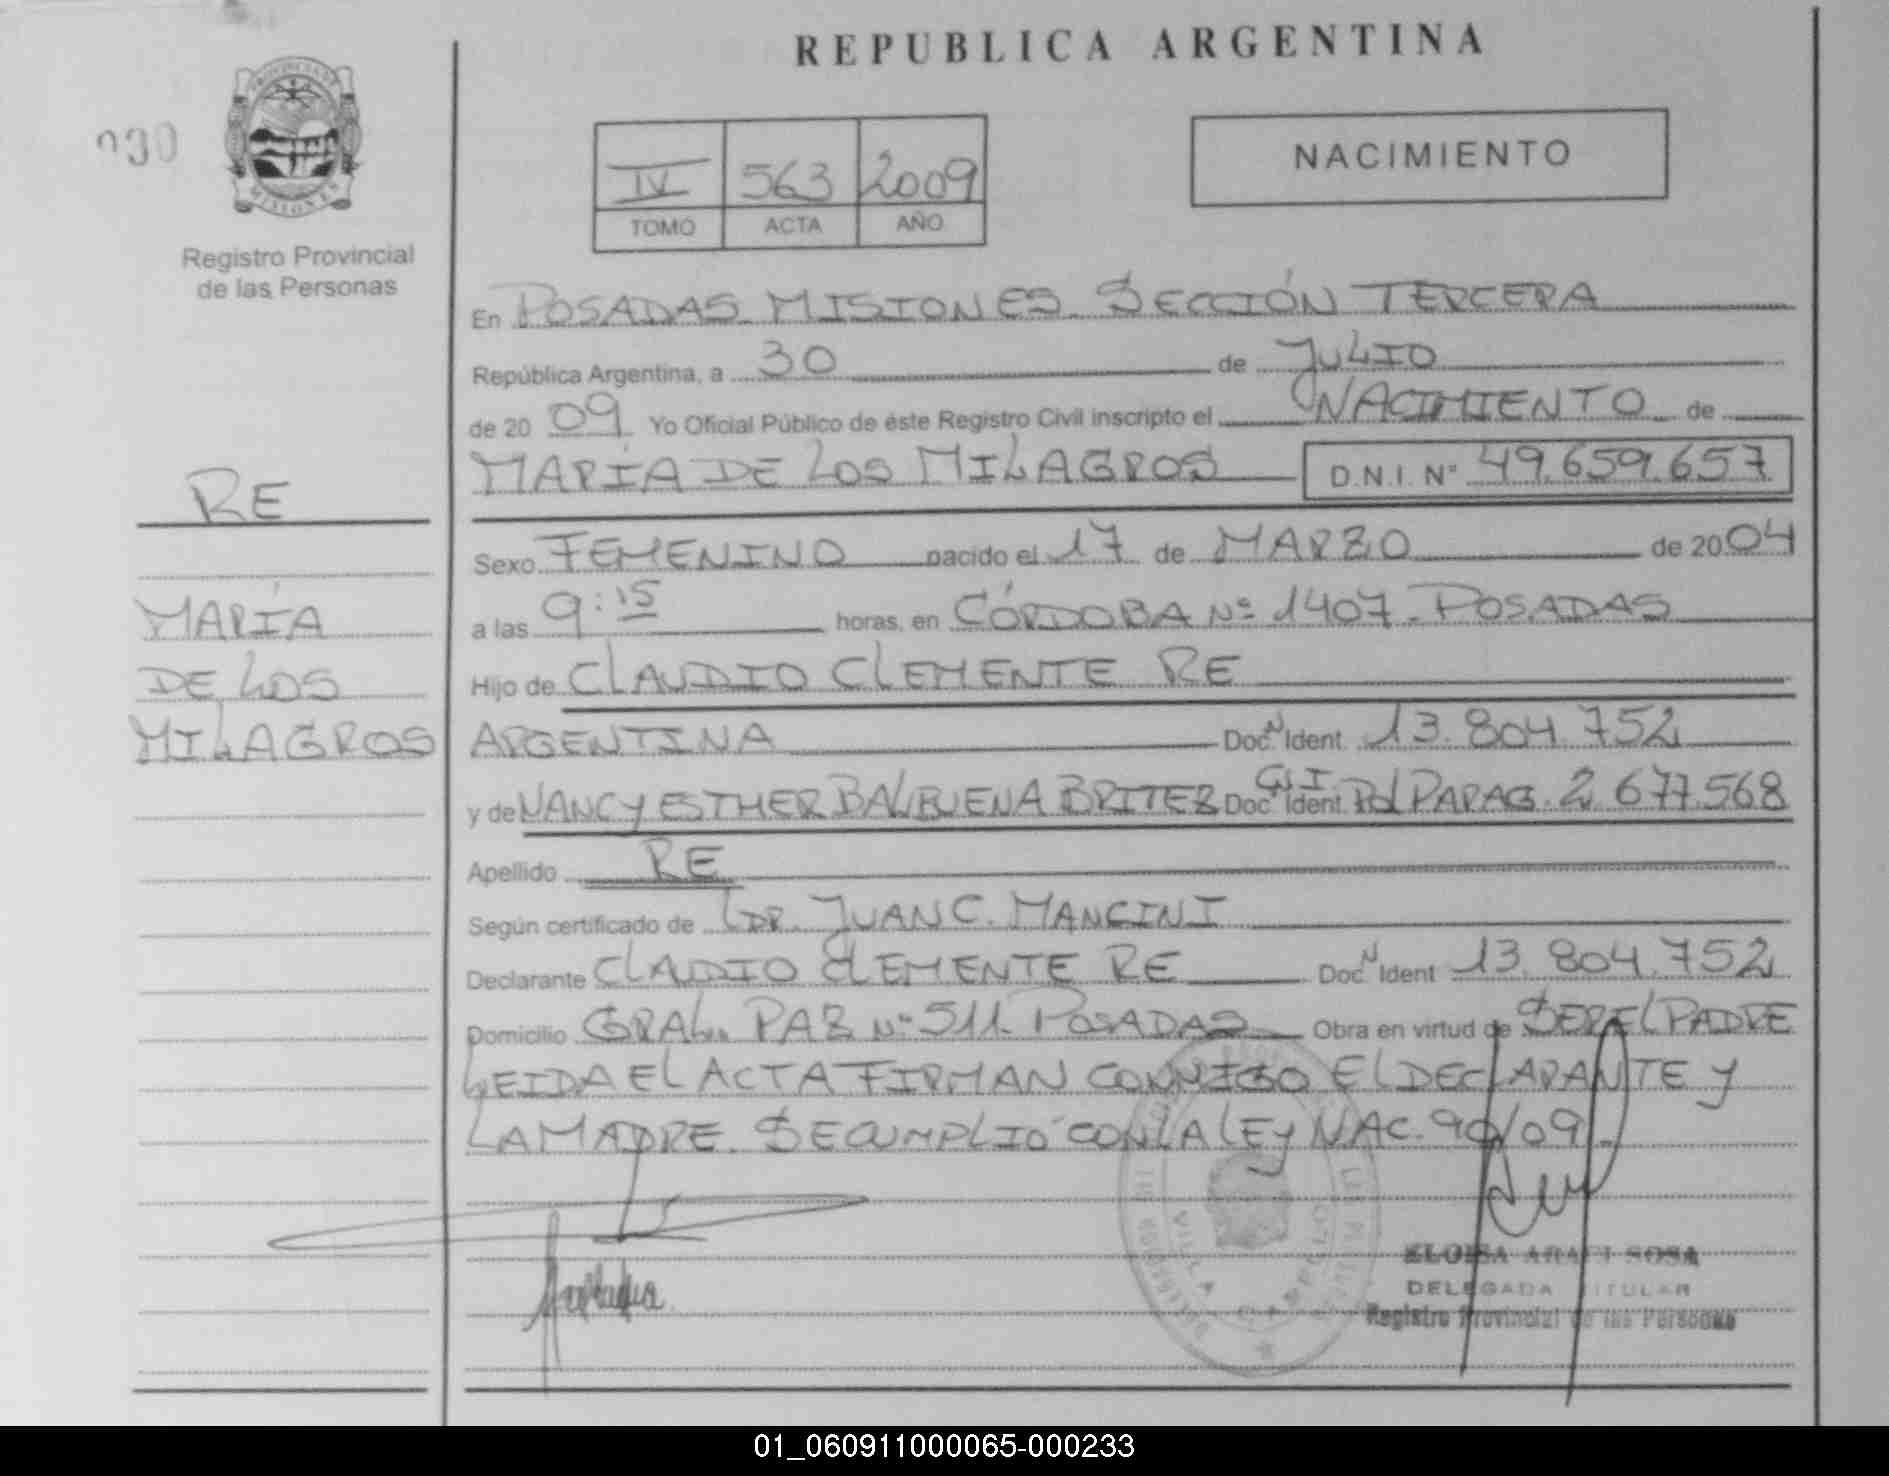 REPUBLICA ARGENTINA
030
PROVINCIA DE
MISIONES
Registro Provincial
de las Personas
IV 563 2009
TOMO ACTA AÑO
NACIMIENTO
En POSADAS MISIONES SECCIÓN TERCERA
República Argentina, a 30 de JULIO
de 2009 Yo Oficial Público de éste Registro Civil inscripto el NACIMIENTO de
MARÍA DE LOS MILAGROS D.N.I. Nº 49.659.657
RE
MARÍA
DE LOS
MILAGROS
Sexo FEMENINO nacido el 17 de MARZO de 2004
a las 9:15 horas, en CÓRDOBA Nº 1407 - POSADAS
Hijo de CLAUDIO CLEMENTE RE
ARGENTINA Doc. N Ident. 13.804.752
y de NANCY ESTHER BALBUENA BRITEZ Doc. C.I. Ident. Pol PARAG. 2 677.568
Apellido RE
Según certificado de DR. JUAN C. MANCINI
Declarante CLAUDIO CLEMENTE RE Doc. N Ident 13.804.752
Domicilio GRAL. PAZ Nº 511 POSADAS Obra en virtud de SER EL PADRE
LEIDA EL ACTA FIRMAN CONMIGO EL DECLARANTE Y
LA MADRE. SE CUMPLIÓ CON LA LEY NAC. 90/09.
DELEGADA TITULAR
Registro Provincial de las Personas
VILLA
01_060911000065-000233